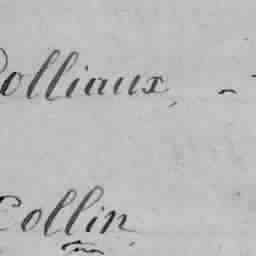 olliaux, -
Collin